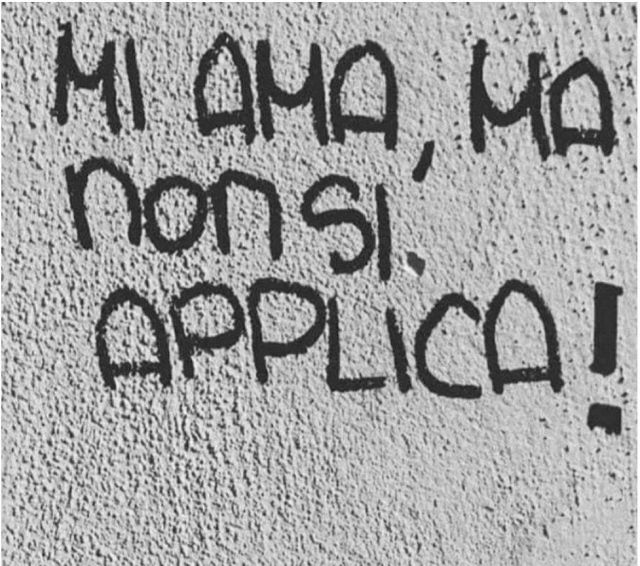 MI AMA, MA
non SI
APPLICA!